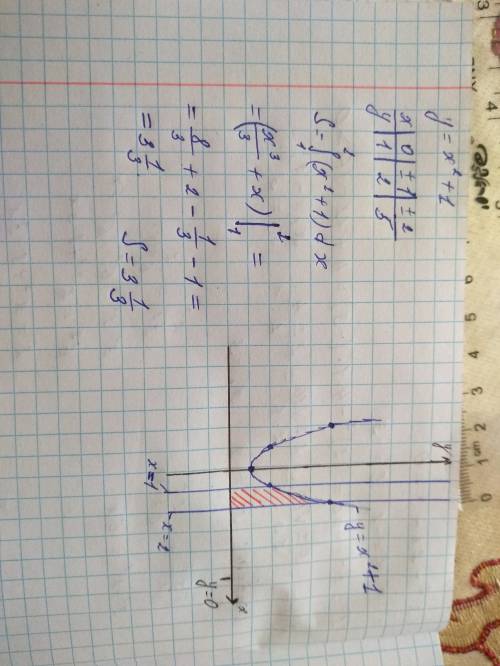 y = x² + 1
x | 0 | ±1 | ±2
y | 1 | 2 | 5
S = ∫₁² (x² + 1) dx
= (x³/3 + x) |₁² =
= 8/3 + 2 - 1/3 - 1 =
= 3 1/3
S = 3 1/3
y
y = x² + 1
x = 1
x = 2
y = 0
x
0 1 cm 2 3 4 5 6